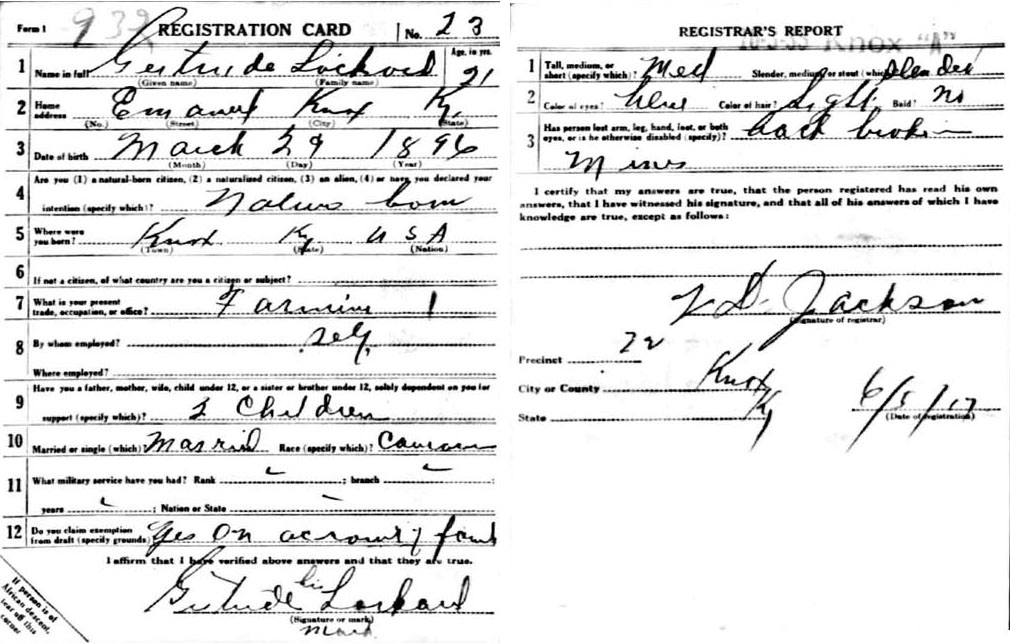 Form 1 939 REGISTRATION CARD No. 23
1 Name in full Gertrude Lockard Age, in yrs. 21
(Given name) (Family name)
2 Home address Emanuel Knox Ky.
(No.) (Street) (City) (State)
3 Date of birth March 29 1896
(Month) (Day) (Year)
4 Are you (1) a natural-born citizen, (2) a naturalized citizen, (3) an alien, (4) or have you declared your
intention (specify which)? born
5 Where were you born? Knox Ky USA
(Town) (State) (Nation)
6 If not a citizen, of what country are you a citizen or subject?
7 What is your present trade, occupation, or office? Farming 1
8 By whom employed? self
Where employed?
9 Have you a father, mother, wife, child under 12, or a sister or brother under 12, solely dependent on you for
support (specify which)? Children
10 Married or single (which)? Married Race (specify which)?
11 What military service have you had? Rank ; branch ;
years ; Nation or State
12 Do you claim exemption from draft (specify grounds)? Yes On account of
I affirm that I have verified above answers and that they are true.
his
Gertrude Lockard
(Signature or mark)
Mark
If person is of
African descent,
tear off this
corner
REGISTRAR'S REPORT
10-3-33 Knox "A"
1 Tall, medium, or short (specify which)? Med Slender, medium, or stout (which)? Slender
2 Color of eyes? blue Color of hair? Light Bald? No
3 Has person lost arm, leg, hand, foot, or both eyes, or is he otherwise disabled (specify)? back broken
Mines
I certify that my answers are true, that the person registered has read his own
answers, that I have witnessed his signature, and that all of his answers of which I have
knowledge are true, except as follows:
D. Jackson
(Signature of registrar)
Precinct 22
City or County Knox
State Ky
6/5/17
(Date of registration)